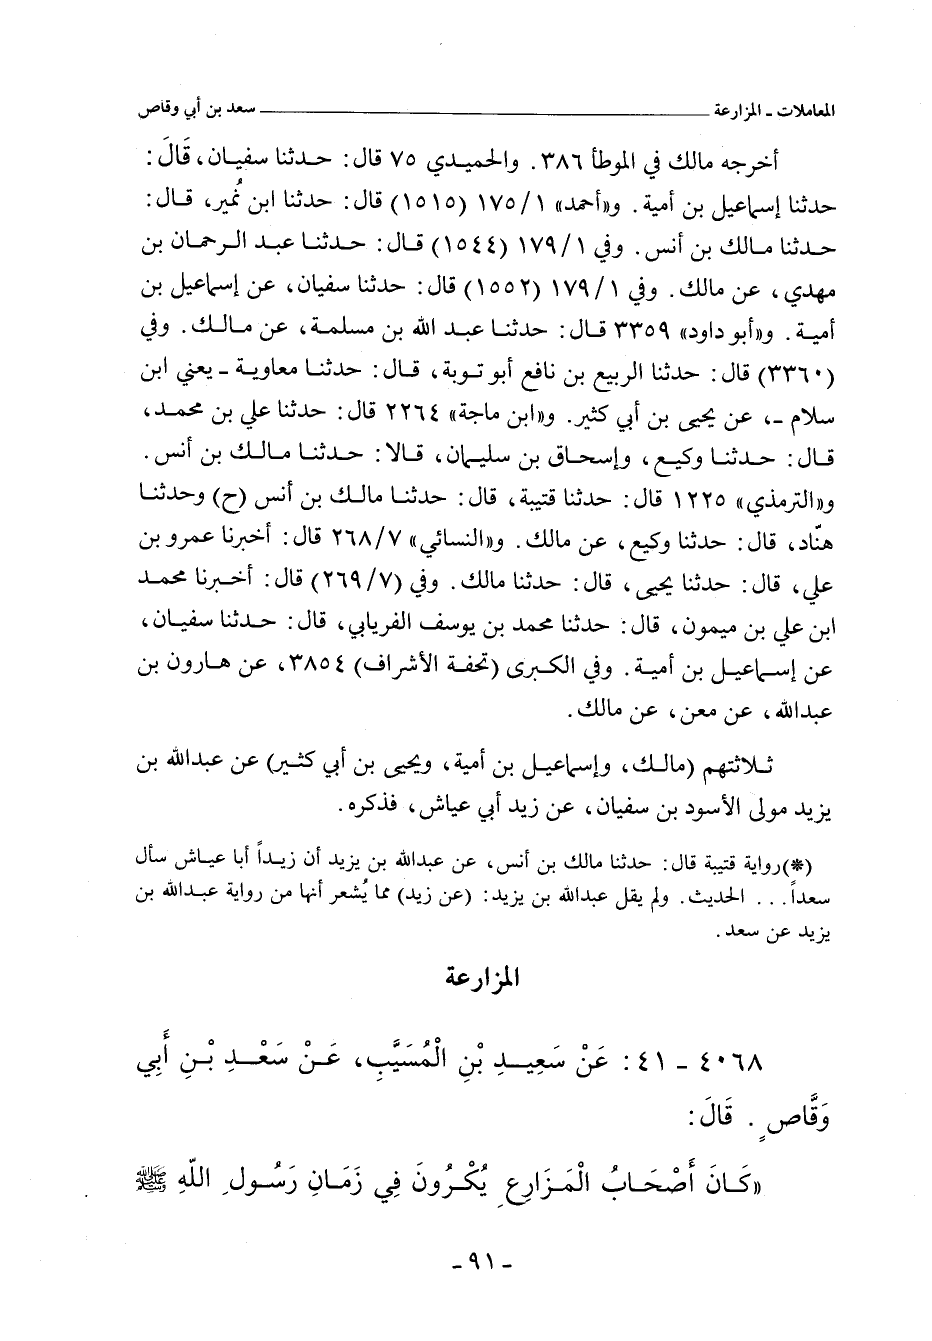 المعاملات ـ المزارعة ــــــــــــــــــــ سعد بن أبي وقاص
أخرجه مالك في الموطأ ٣٨٦. والحميدي ٧٥ قال: حدثنا سفيان، قَالَ:
حدثنا إسماعيل بن أمية. و«أحمد» ١/ ١٧٥ (١٥١٥) قال: حدثنا ابن نُمير، قال:
حدثنا مالك بن أنس. وفي ١/ ١٧٩ (١٥٤٤) قال: حدثنا عبد الرحمان بن
مهدي، عن مالك. وفي ١/ ١٧٩ (١٥٥٢) قال: حدثنا سفيان، عن إسماعيل بن
أمية. و«أبو داود» ٣٣٥٩ قال: حدثنا عبد الله بن مسلمة، عن مالك. وفي
(٣٣٦٠) قال: حدثنا الربيع بن نافع أبو توبة، قال: حدثنا معاوية ـ يعني ابن
سلام ـ، عن يحيى بن أبي كثير. و«ابن ماجة» ٢٢٦٤ قال: حدثنا علي بن محمد،
قال: حدثنا وكيع، وإسحاق بن سليمان، قالا: حدثنا مالك بن أنس.
و«الترمذي» ١٢٢٥ قال: حدثنا قتيبة، قال: حدثنا مالك بن أنس (ح) وحدثنا
هنّاد، قال: حدثنا وكيع، عن مالك. و«النسائي» ٧/ ٢٦٨ قال: أخبرنا عمرو بن
علي، قال: حدثنا يحيى، قال: حدثنا مالك. وفي (٧/ ٢٦٩) قال: أخبرنا محمد
ابن علي بن ميمون، قال: حدثنا محمد بن يوسف الفريابي، قال: حدثنا سفيان،
عن إسماعيل بن أمية. وفي الكبرى (تحفة الأشراف) ٣٨٥٤، عن هارون بن
عبدالله، عن معن، عن مالك.
ثلاثتهم (مالك، وإسماعيل بن أمية، ويحيى بن أبي كثير) عن عبدالله بن
يزيد مولى الأسود بن سفيان، عن زيد أبي عياش، فذكره.
(*) رواية قتيبة قال: حدثنا مالك بن أنس، عن عبدالله بن يزيد أن زيداً أبا عياش سأل
سعداً... الحديث. ولم يقل عبدالله بن يزيد: (عن زيد) مما يُشعر أنها من رواية عبدالله بن
يزيد عن سعد.
المزارعة
٤٠٦٨ ـ ٤١: عَنْ سَعِيدِ بْنِ الْمُسَيَّبِ، عَنْ سَعْدِ بْنِ أَبِي
وَقَّاصٍ. قَالَ:
«كَانَ أَصْحَابُ الْمَزَارِعِ يُكْرُونَ فِي زَمَانِ رَسُولِ اللّهِ ﷺ
- ٩١ -